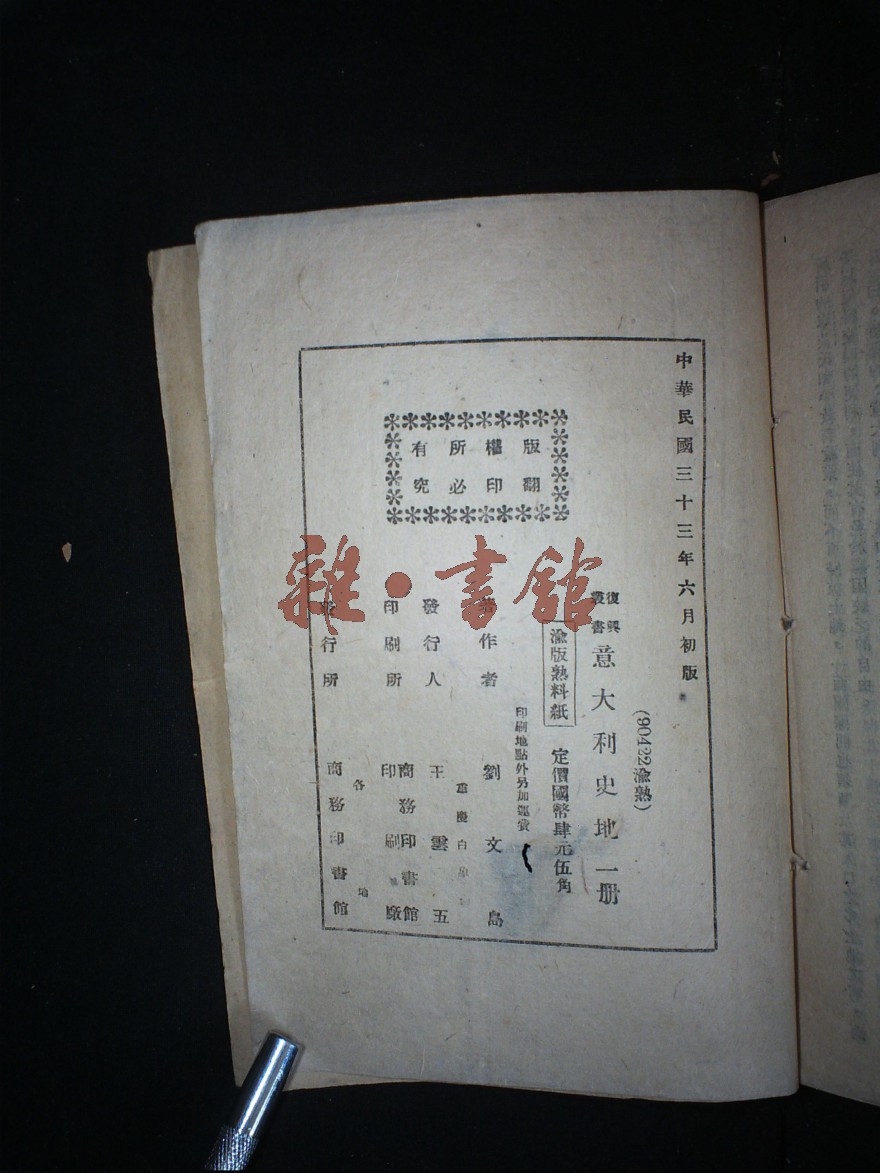 中華民國三十三年六月初版
(90422渝熟)
復興叢書 意大利史地一册
渝版熟料紙 定價國幣肆元伍角
印刷地點外另加運費
版權所有
翻印必究
著作者 劉文島
重慶白象街
發行人 王雲五
印刷所 商務印書館印刷廠
各地
發行所 商務印書館
雜·書館